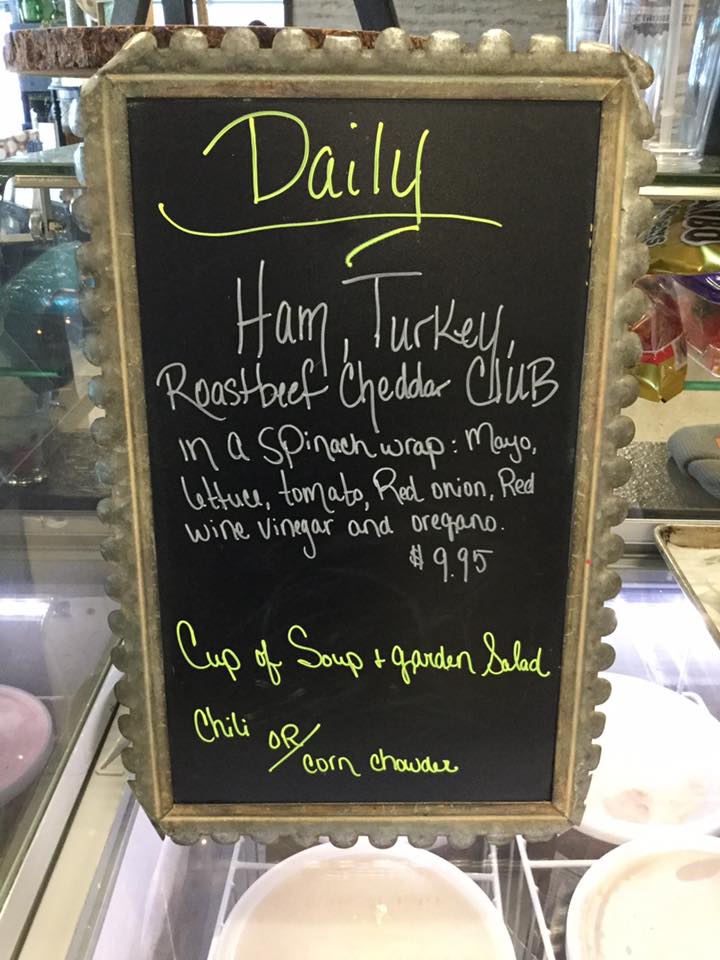 Daily
Ham, Turkey,
Roastbeef Cheddar CluB
in a spinach wrap: Mayo,
lettuce, tomato, Red onion, Red
wine vinegar and oregano.
$9.95
Cup of Soup + garden Salad
Chili OR/
corn chowder